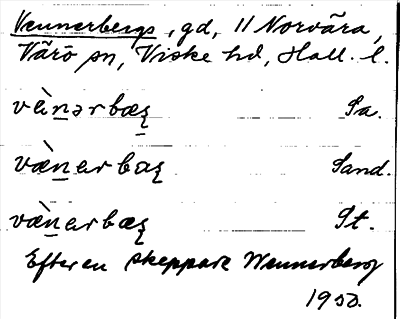 Vennerbergs, gd, 11 Norvära,
Värö sn, Viske hd, Hall. l.
væ̀nərbæʂ Sa.
væ̀nerbaʂ Sand.
væ̀nərbæʂ St.
Efter en skeppare Wennerberg